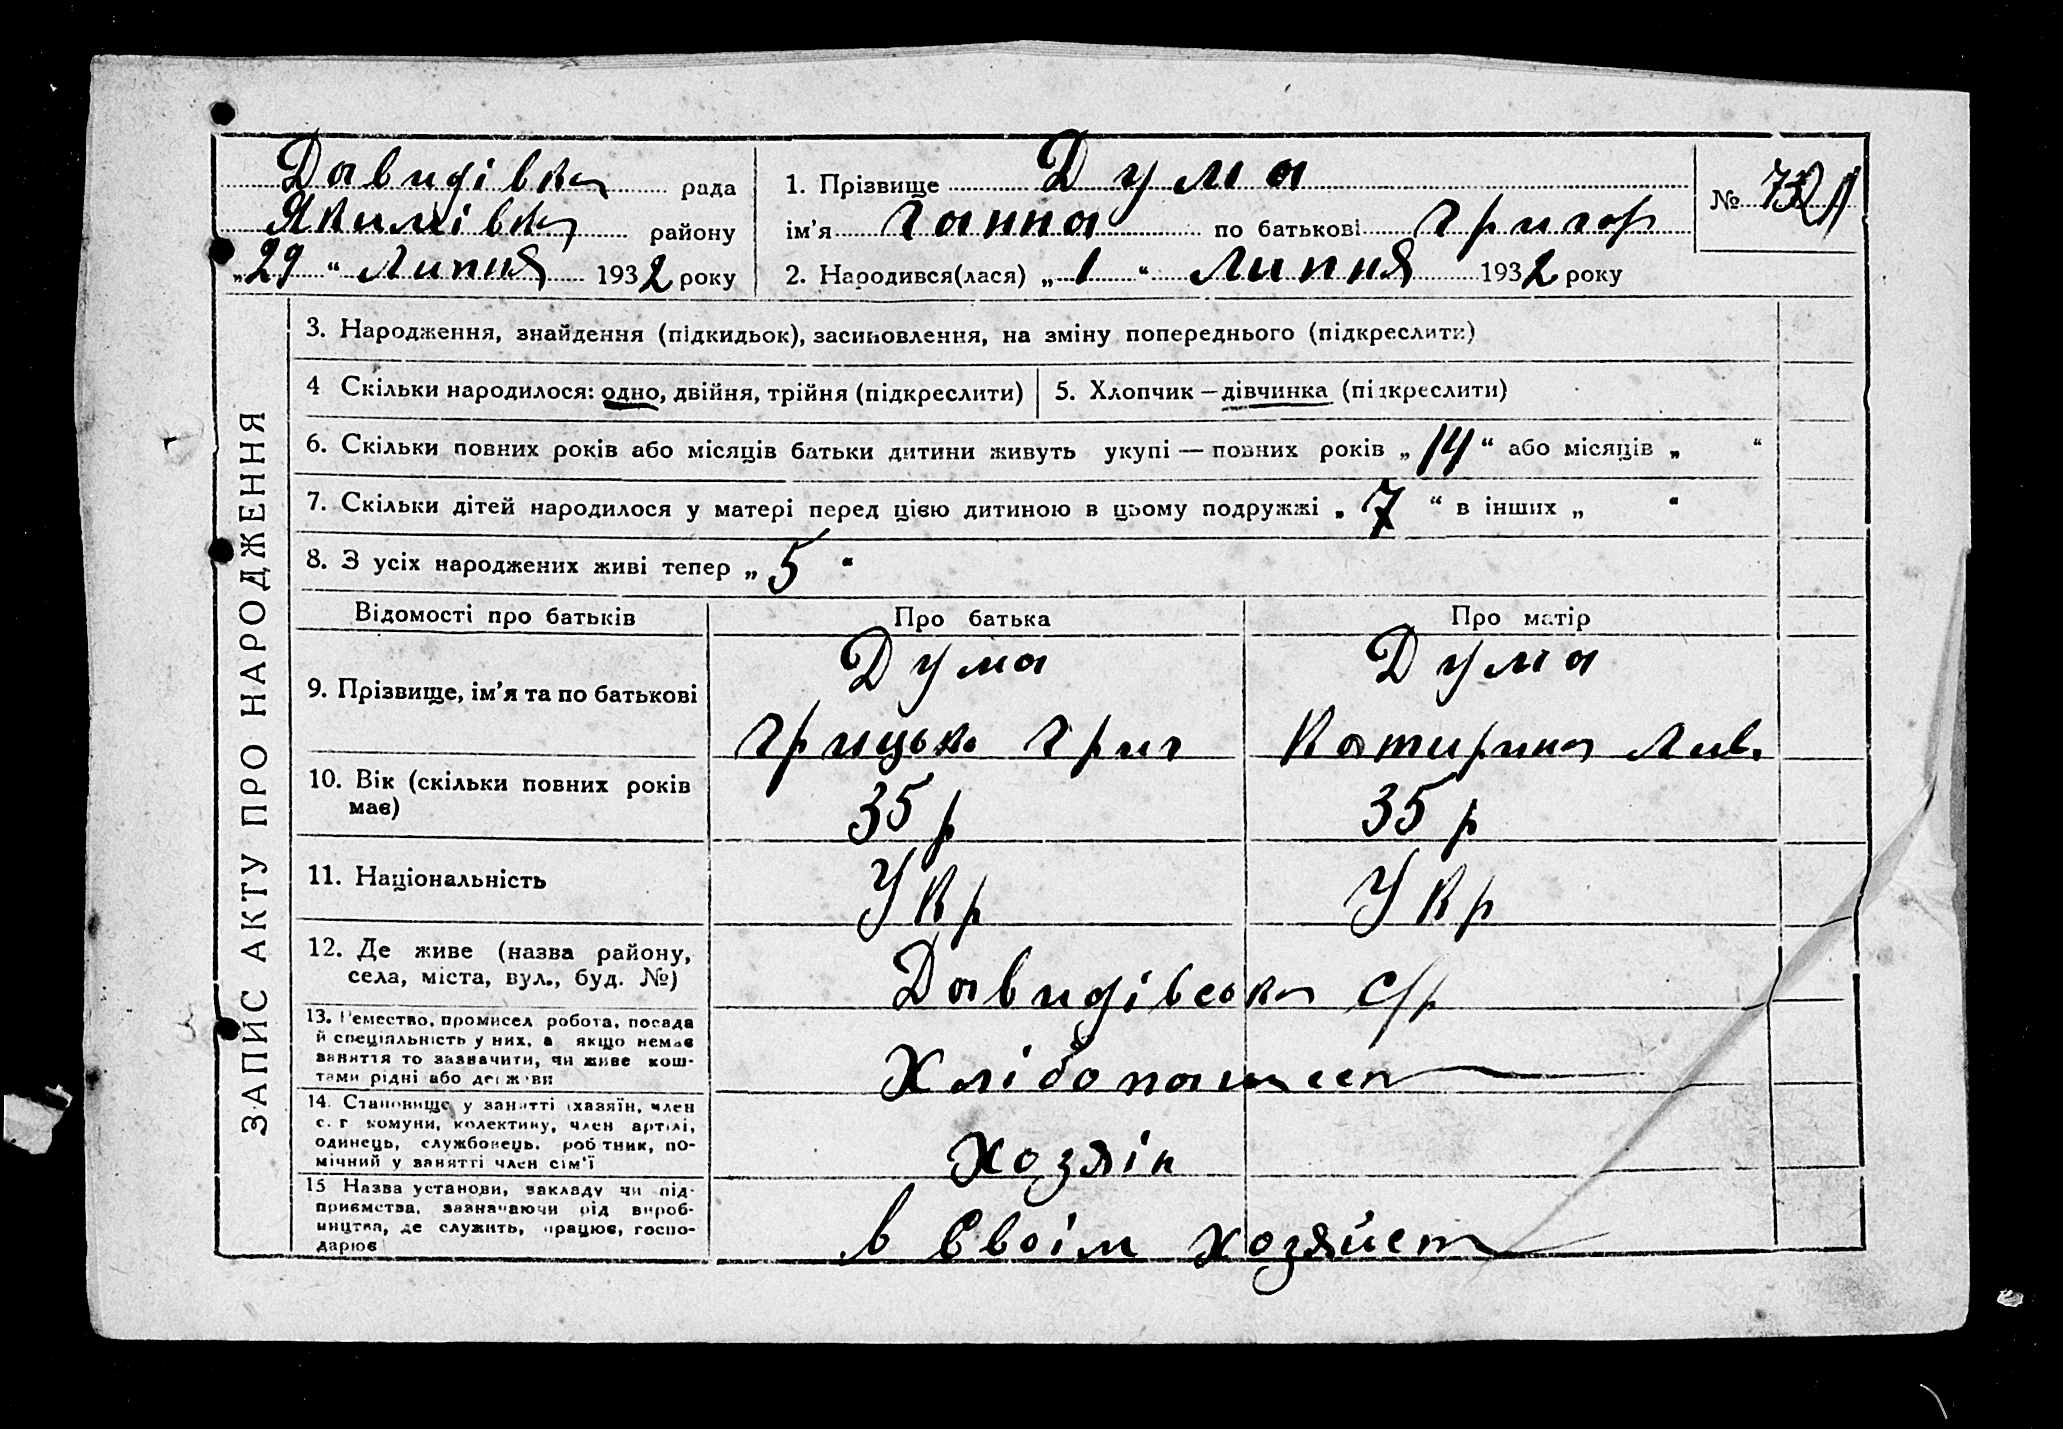 Давидівка рада
Якимівка району
„29“ Липня 1932 року
1. Прізвище Дума
ім'я Ганна по батькові Григор
№
2. Народився(лася) „1“ Липня 1932 року
ЗАПИС АКТУ ПРО НАРОДЖЕННЯ
3. Народження, знайдення (підкидьок), засиновлення, на зміну попереднього (підкреслити)
4 Скільки народилося: одно, двійня, трійня (підкреслити)
5. Хлопчик – дівчинка (підкреслити)
6. Скільки повних років або місяців батьки дитини живуть укупі — повних років „14“ або місяців „ “
7. Скільки дітей народилося у матері перед цією дитиною в цьому подружжі „7“ в інших „ “
8. З усіх народжених живі тепер „5“
Відомості про батьків
Про батька
Про матір
9. Прізвище, ім'я та по батькові
Дума
Грицько Григ
Дума
Катирина Лив.
10. Вік (скільки повних років
має)
35 р
35 р
11. Національність
Укр
Укр
12. Де живе (назва району,
села, міста, вул., буд. №)
Давидівська с/р
13. Ремество, промисел робота, посада
й спеціяльність у них, а якщо немає
заняття то зазначити, чи живе кош-
тами рідні або держави
Хлібопашест
14. Становище у занятті (хазяїн, член
с. г комуни, колективу, член артілі,
одинець, службовець, робітник, по-
мічний у занятті член сім'ї
Хозяін
15 Назва установи, закладу чи під-
приємства, зазначаючи рід вироб-
ництва, де служить, працює, госпо-
дарює
в своім хозяйст